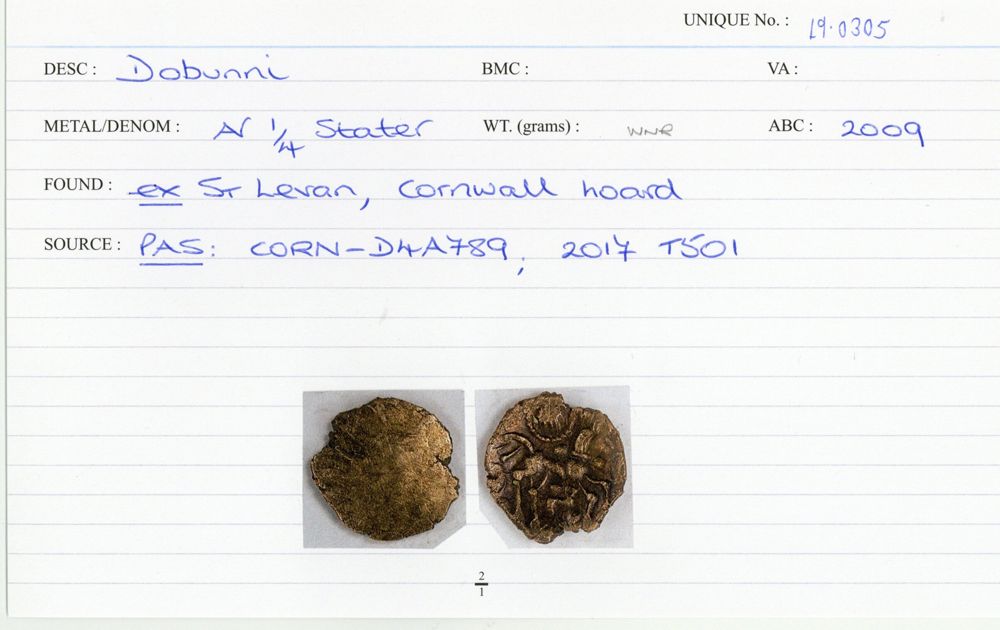 UNIQUE No. : 19.0305
DESC : Dobunni BMC : VA :
METAL/DENOM : AV 1/4 Stater WT. (grams) : WNR ABC : 2009
FOUND : ex St Levan, Cornwall hoard
SOURCE : PAS: CORN-D4A789, 2017 T501
2
1